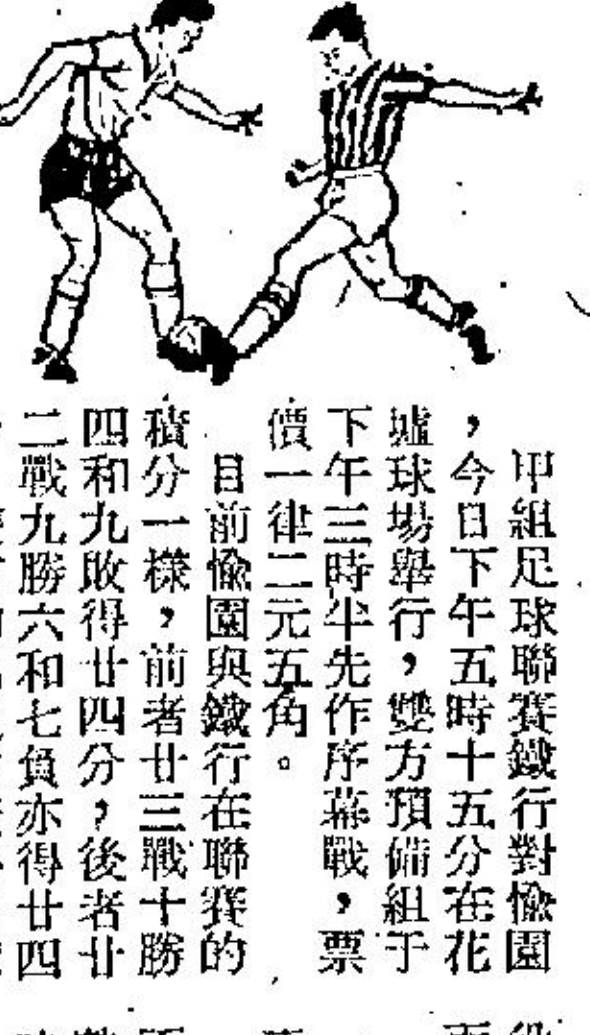 甲組足球聯賽鐵行對愉園
，今日下午五時十五分在花
墟球場舉行，雙方預備組于
下午三時半先作序幕戰，票
價一律二元五角。
目前愉園與鐵行在聯賽的
積分一樣，前者廿三戰十勝
四和九敗得廿四分，後者廿
二戰九勝六和七負亦得廿四